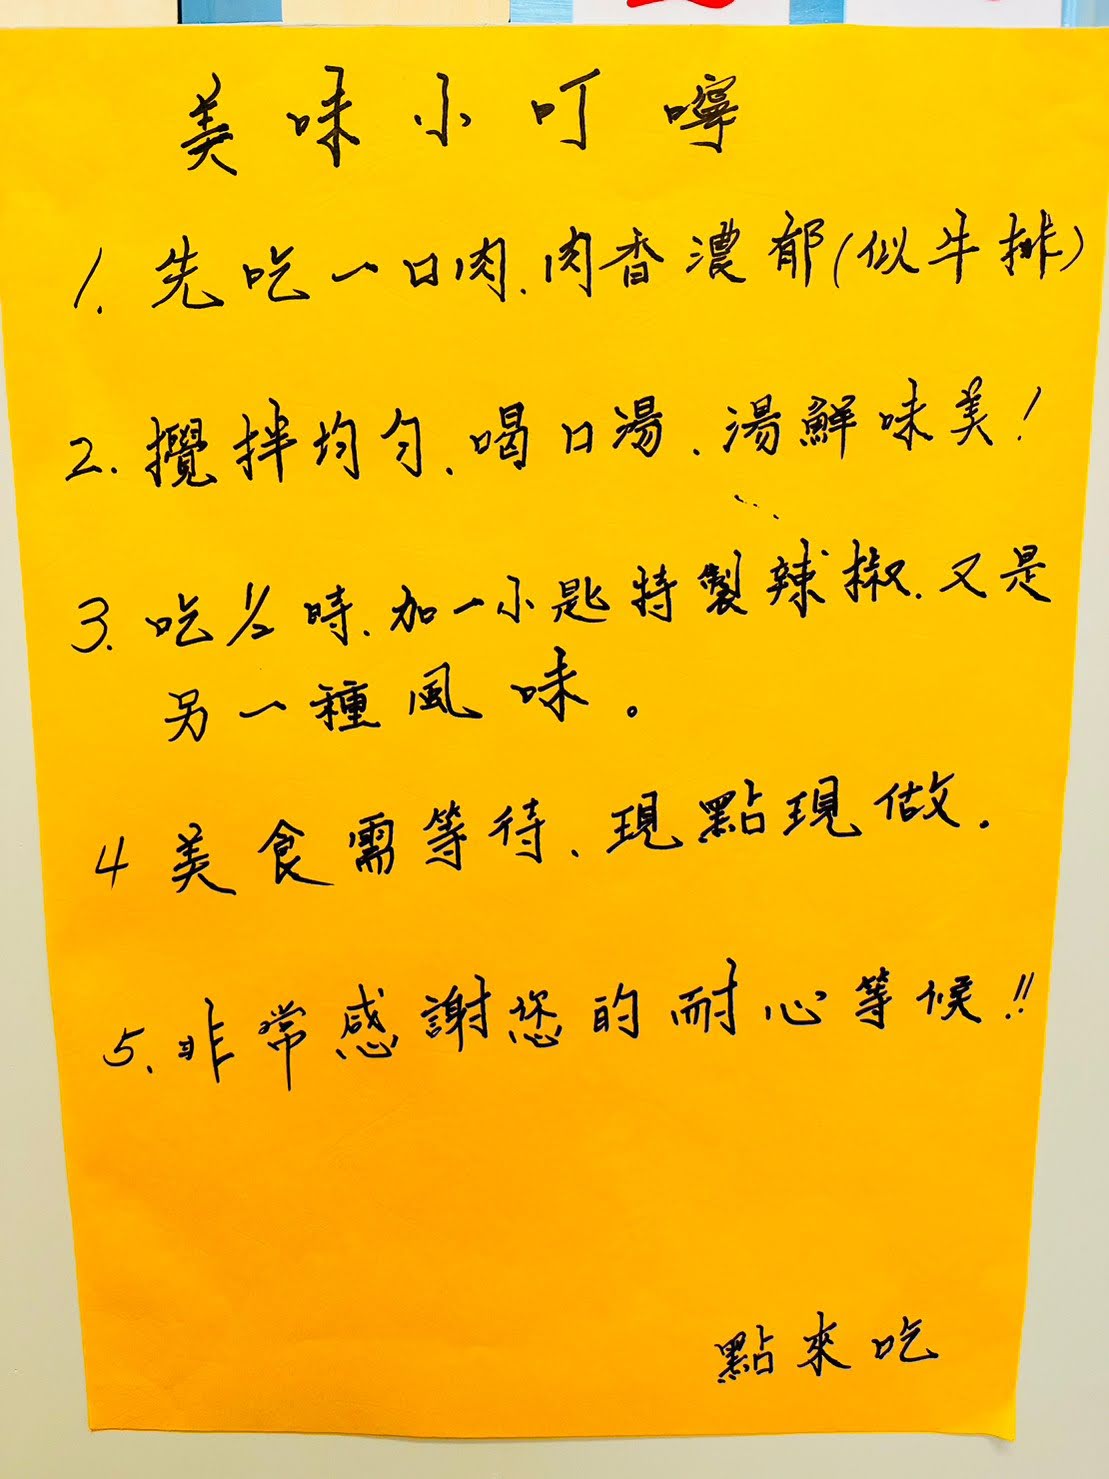 美味小叮嚀
1. 先吃一口肉.肉香濃郁(似牛排)
2. 攪拌均勻、喝口湯、湯鮮味美!
3. 吃1/2時、加一小匙特製辣椒、又是
另一種風味。
4 美食需等待、現點現做.
5. 非常感謝您的耐心等候!!
點來吃